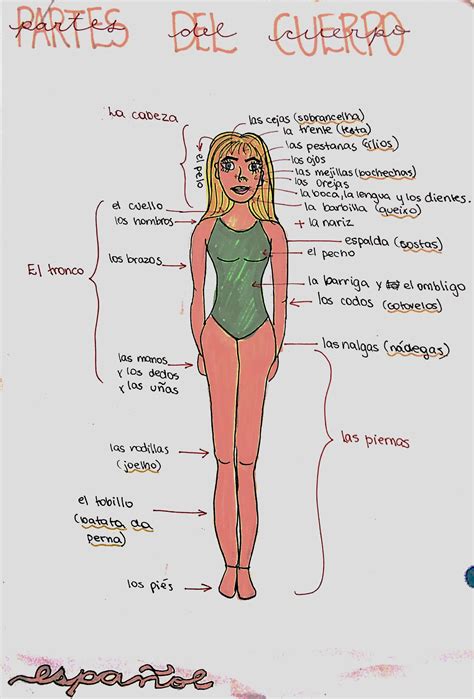 PARTES DEL CUERPO
partes del cuerpo
La cabeza
el pelo
las cejas (sobrancelha)
la frente (testa)
las pestanas (cílios)
los ojos
las mejillas (bochechas)
las orejas
la boca, la lengua y los dientes.
la barbilla (queixo)
+ la nariz
el cuello
los hombros
El tronco
los brazos
espalda (costas)
el pecho
la barriga y el ombligo
los codos (cotovelos)
las manos
y los dedos
y las uñas
las nalgas (nádegas)
las piernas
las rodillas
(joelho)
el tobillo
(batata da
perna)
los piés
español